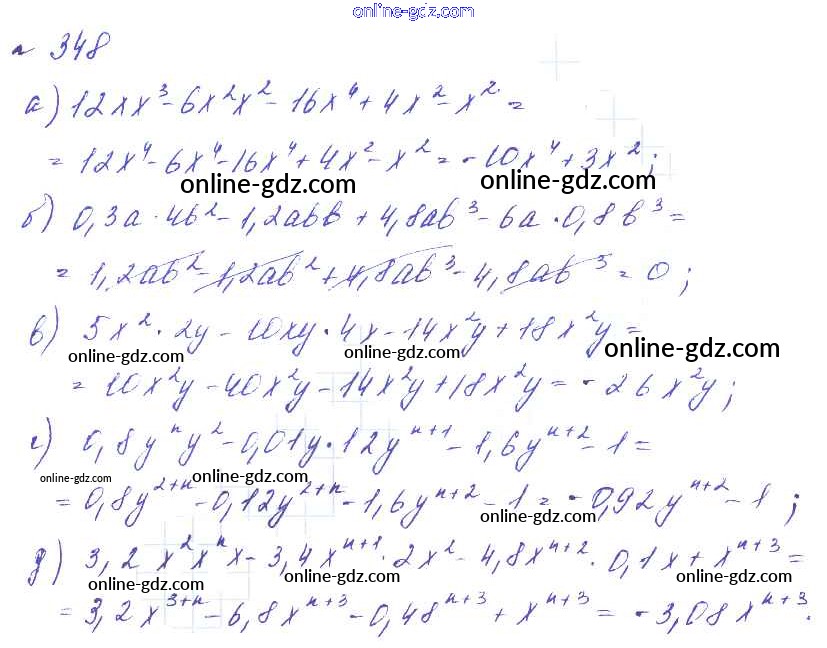 online-gdz.com
№ 348
а) 12xx³ - 6x²x² - 16x⁴ + 4x² - x² =
= 12x⁴ - 6x⁴ - 16x⁴ + 4x² - x² = -10x⁴ + 3x²;
online-gdz.com online-gdz.com
б) 0,3a · 4b² - 1,2abb + 4,8ab³ - 6a · 0,8b³ =
= 1,2ab² - 1,2ab² + 4,8ab³ - 4,8ab³ = 0;
в) 5x² · 2y - 10xy · 4x - 14x²y + 18x²y =
online-gdz.com online-gdz.com online-gdz.com
= 10x²y - 40x²y - 14x²y + 18x²y = -26x²y;
г) 0,8yⁿy² - 0,01y · 12yⁿ⁺¹ - 1,6yⁿ⁺² - 1 =
online-gdz.com online-gdz.com
= 0,8y²⁺ⁿ - 0,12y²⁺ⁿ - 1,6yⁿ⁺² - 1 = -0,92yⁿ⁺² - 1;
online-gdz.com
д) 3,2x²xⁿx - 3,4xⁿ⁺¹ · 2x² - 4,8xⁿ⁺² · 0,1x + xⁿ⁺³ =
online-gdz.com online-gdz.com online-gdz.com
= 3,2x³⁺ⁿ - 6,8xⁿ⁺³ - 0,48ⁿ⁺³ + xⁿ⁺³ = -3,08xⁿ⁺³.